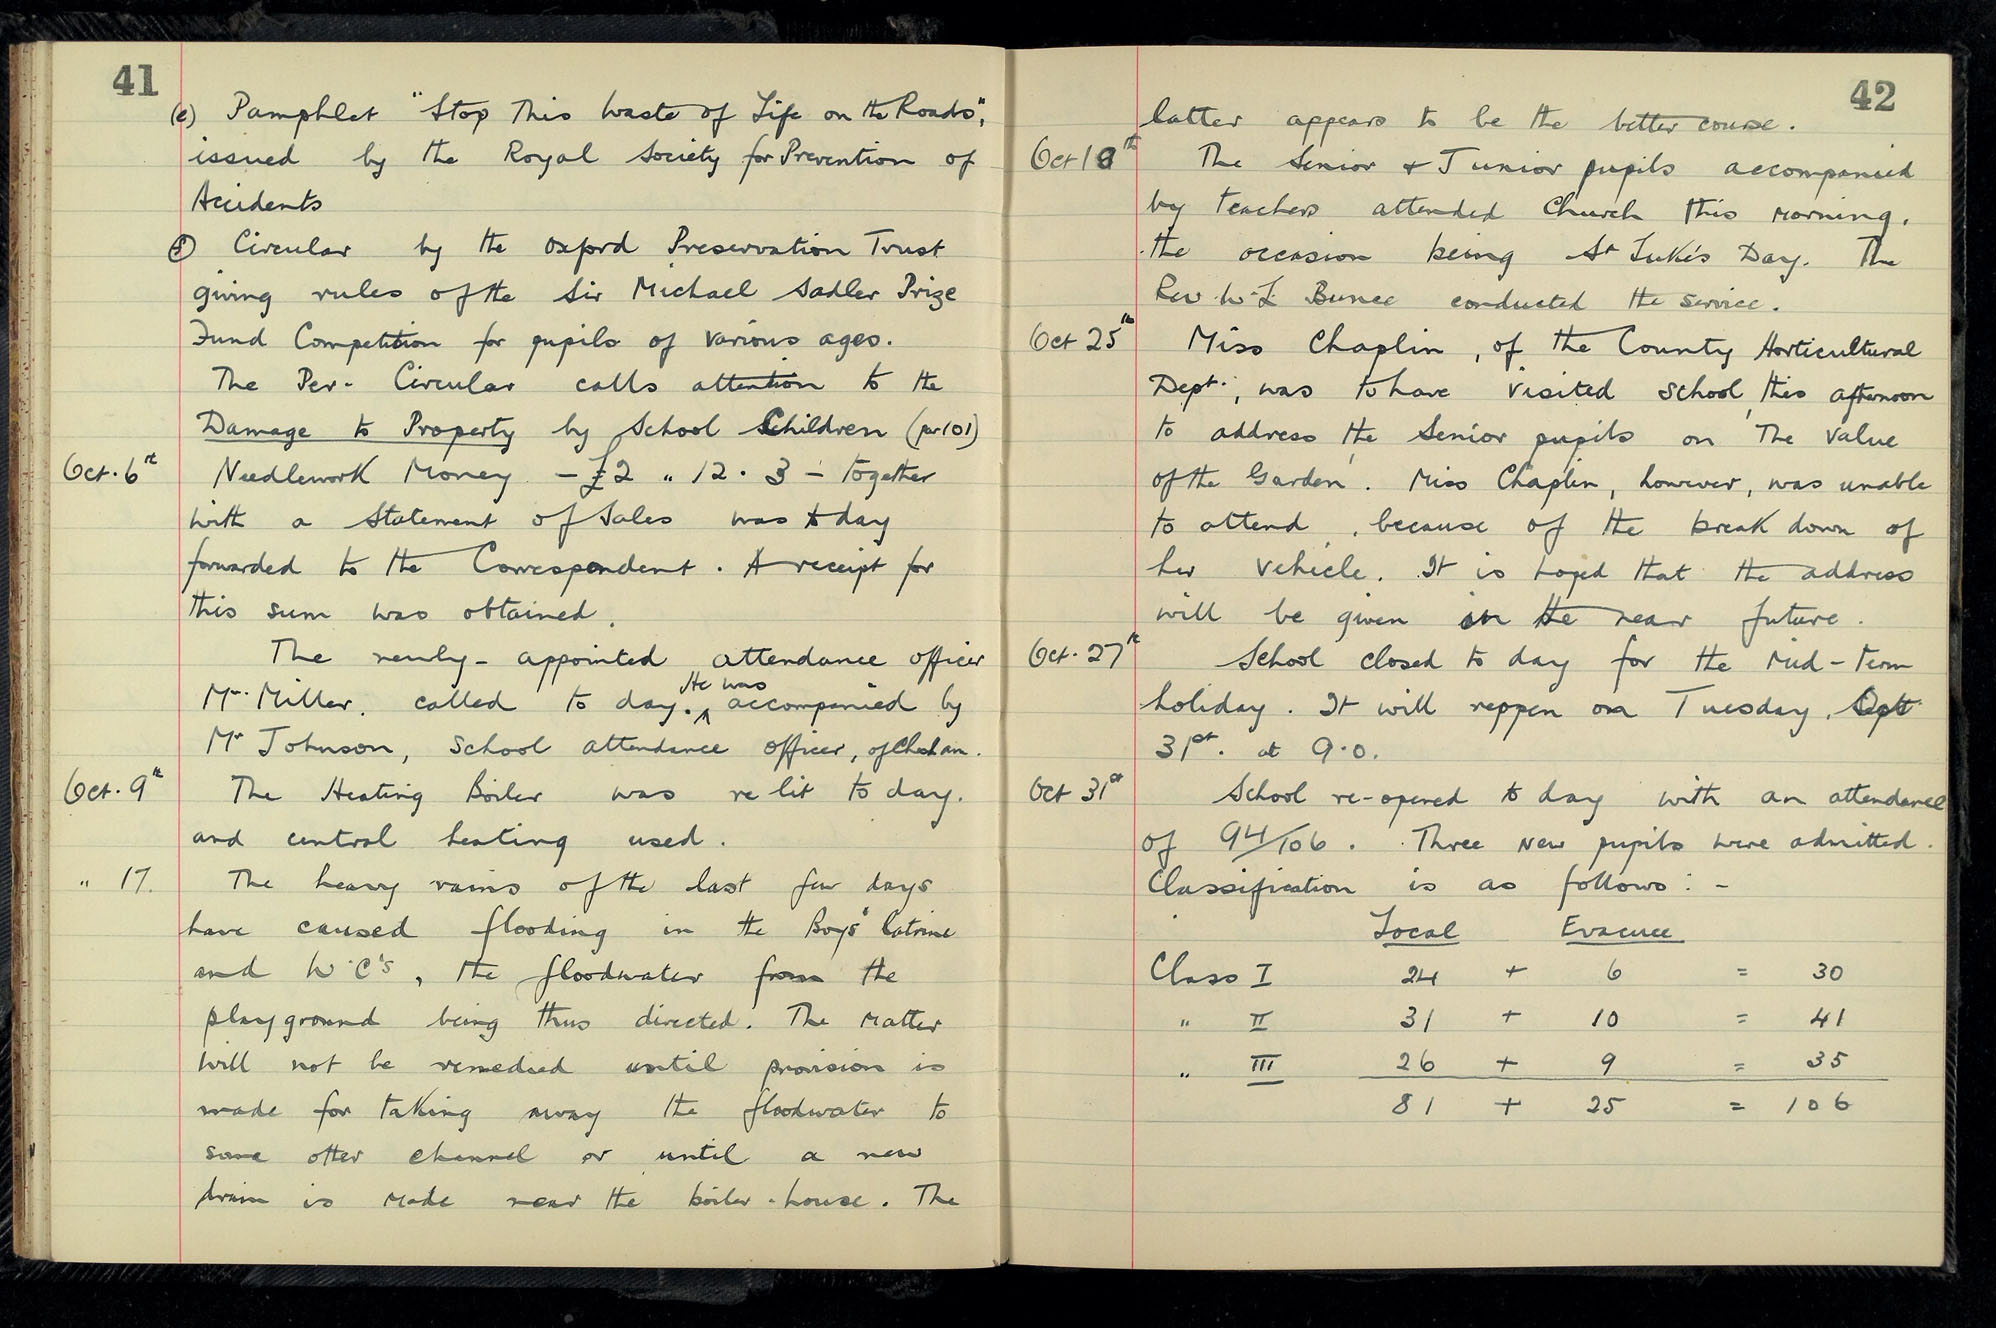 41
(e) Pamphlet "Stop This Waste of Life on the Roads",
issued by the Royal Society for Prevention of
Accidents
(f) Circular by the Oxford Preservation Trust
giving rules of the Sir Michael Sadler Prize
Fund Competition for pupils of various ages.
The Per. Circular calls attention to the
Damage to Property by School Children (par 101)
Oct. 6th Needlework Money - £2 " 12 . 3 - together
with a statement of sales was to day
forwarded to the Correspondent. A receipt for
this sum was obtained.
The newly-appointed attendance officer
He was
Mr. Miller, called to day. accompanied by
Mr Johnson, School attendance officer, of Chesham.
Oct. 9th The Heating Boiler was re lit to day.
and central heating used.
" 17. The heavy rains of the last few days
have caused flooding in the Boys' latrine
and W.C's, the floodwater from the
playground being thus directed. The matter
will not be remedied until provision is
made for taking away the floodwater to
some other channel or until a new
drain is made near the boiler-house. The
42
latter appears to be the better course.
Oct 18th The Senior & Junior pupils accompanied
by teachers attended Church this morning,
the occasion being St Luke's Day. The
Rev. W.L Bunce conducted the service.
Oct 25th Miss Chaplin, of the County Horticultural
Dept., was to have visited school this afternoon
to address the Senior pupils on 'The Value
of the Garden'. Miss Chaplin, however, was unable
to attend, because of the break down of
her vehicle. It is hoped that the address
will be given in the near future.
Oct. 27th School closed to day for the Mid-Term
holiday. It will reppen on Tuesday, Oct
31st. at 9.0.
Oct 31st School re-opened to day with an attendance
of 94/106. Three new pupils were admitted.
Classification is as follows: -
Local Evacuee
Class I 24 + 6 = 30
" II 31 + 10 = 41
" III 26 + 9 = 35
81 + 25 = 106